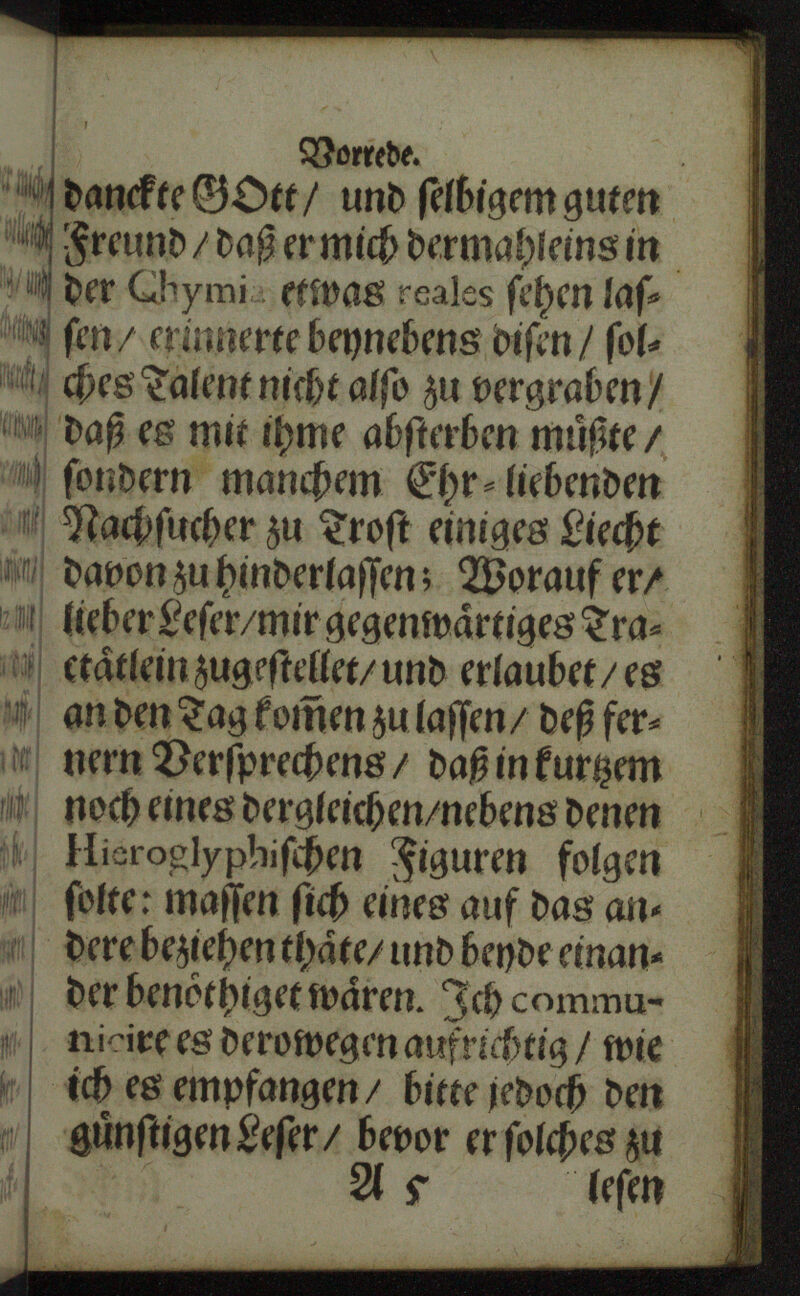 Vorrede.
danckte GOtt / und ſelbigem guten
Freund / daß er mich dermahleins in
der Chymia etwas reales ſehen laſ⸗
ſen / erinnerte beynebens diſen / ſol⸗
ches Talent nicht alſo zu vergraben /
daß es mit ihme abſterben muͤßte /
ſondern manchem Ehr⸗liebenden
Nachſucher zu Troſt einiges Liecht
davon zu hinderlaſſen; Worauf er /
lieber Leſer / mir gegenwaͤrtiges Tra⸗
ctaͤtlein zugeſtellet / und erlaubet / es
an den Tag kom̃en zu laſſen / deß fer⸗
nern Verſprechens / daß in kurtzem
noch eines dergleichen / nebens denen
Hieroglyphiſchen Figuren folgen
ſolte: maſſen ſich eines auf das an⸗
dere beziehen thaͤte / und beyde einan⸗
der benoͤthiget waͤren. Ich commu-
nicire es derowegen aufrichtig / wie
ich es empfangen / bitte jedoch den
guͤnſtigen Leſer / bevor er ſolches zu
A 5 leſen